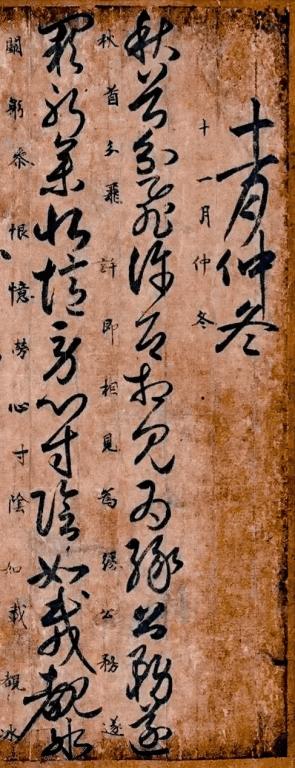 十一月仲冬
十一月仲冬
秋首分飛許即相見為緣公務遂
秋首分飛許即相見為緣公務遂
闕躬叅恨憶勞心寸陰如載覩冰
闕躬叅恨憶勞心寸陰如載覩冰